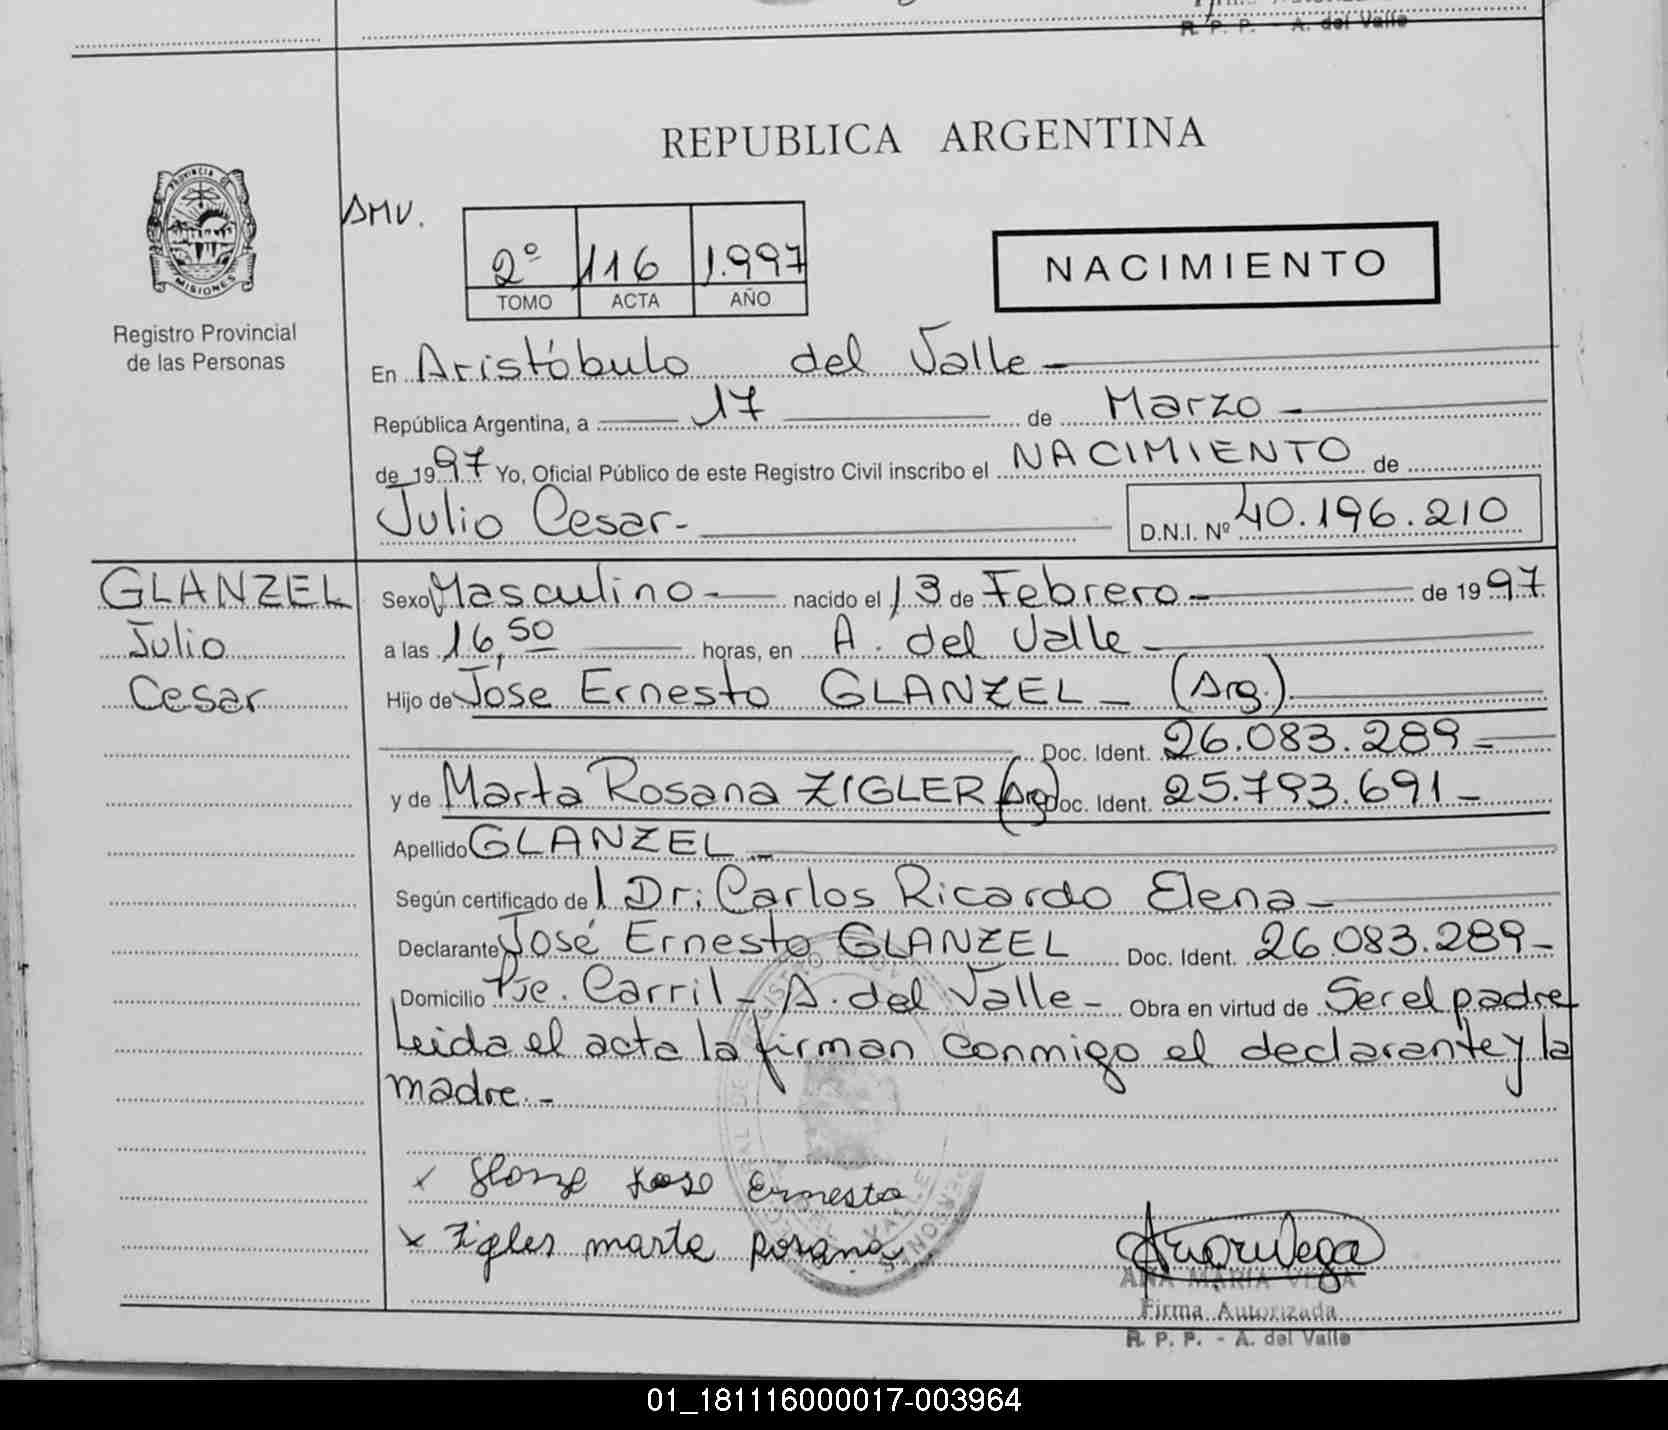 R. P. P. - A. del Valle
REPUBLICA ARGENTINA
PROVINCIA DE
MISIONES
Registro Provincial
de las Personas
AMV.
2º 116 1.997
TOMO ACTA AÑO
NACIMIENTO
En Aristóbulo del Valle -
República Argentina, a 17 de Marzo -
de 1997 Yo, Oficial Público de este Registro Civil inscribo el NACIMIENTO de
Julio Cesar - D.N.I. Nº 40.196.210
GLANZEL
Julio
Cesar
Sexo Masculino - nacido el 13 de Febrero - de 1997.
a las 16,50 horas, en A. del Valle -
Hijo de José Ernesto GLANZEL - (Arg.)
Doc. Ident. 26.083.289 -
y de Marta Rosana ZIGLER (Arg) Doc. Ident. 25.793.691 -
Apellido GLANZEL -
Según certificado de l Dr: Carlos Ricardo Elena -
Declarante José Ernesto GLANZEL Doc. Ident. 26.083.289 -
Domicilio Pje. Carril - A. del Valle - Obra en virtud de Ser el padre
Leida el acta la firman conmigo el declarante y la
madre. -
x Jose Ernesto
x Zigler marta Rosana
ANA MARIA VEGA
Firma Autorizada
R. P. P. - A. del Valle
01_181116000017-003964